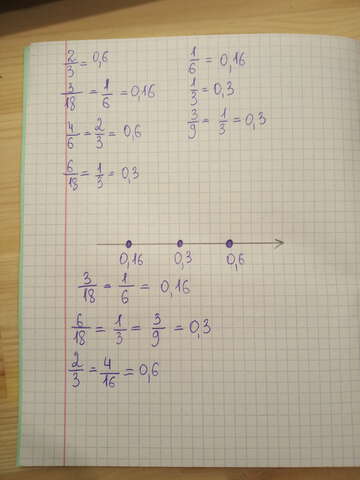 2/3 = 0,6
3/18 = 1/6 = 0,16
4/6 = 2/3 = 0,6
6/18 = 1/3 = 0,3
1/6 = 0,16
1/3 = 0,3
3/9 = 1/3 = 0,3
0,16 0,3 0,6
3/18 = 1/6 = 0,16
6/18 = 1/3 = 3/9 = 0,3
2/3 = 4/16 = 0,6